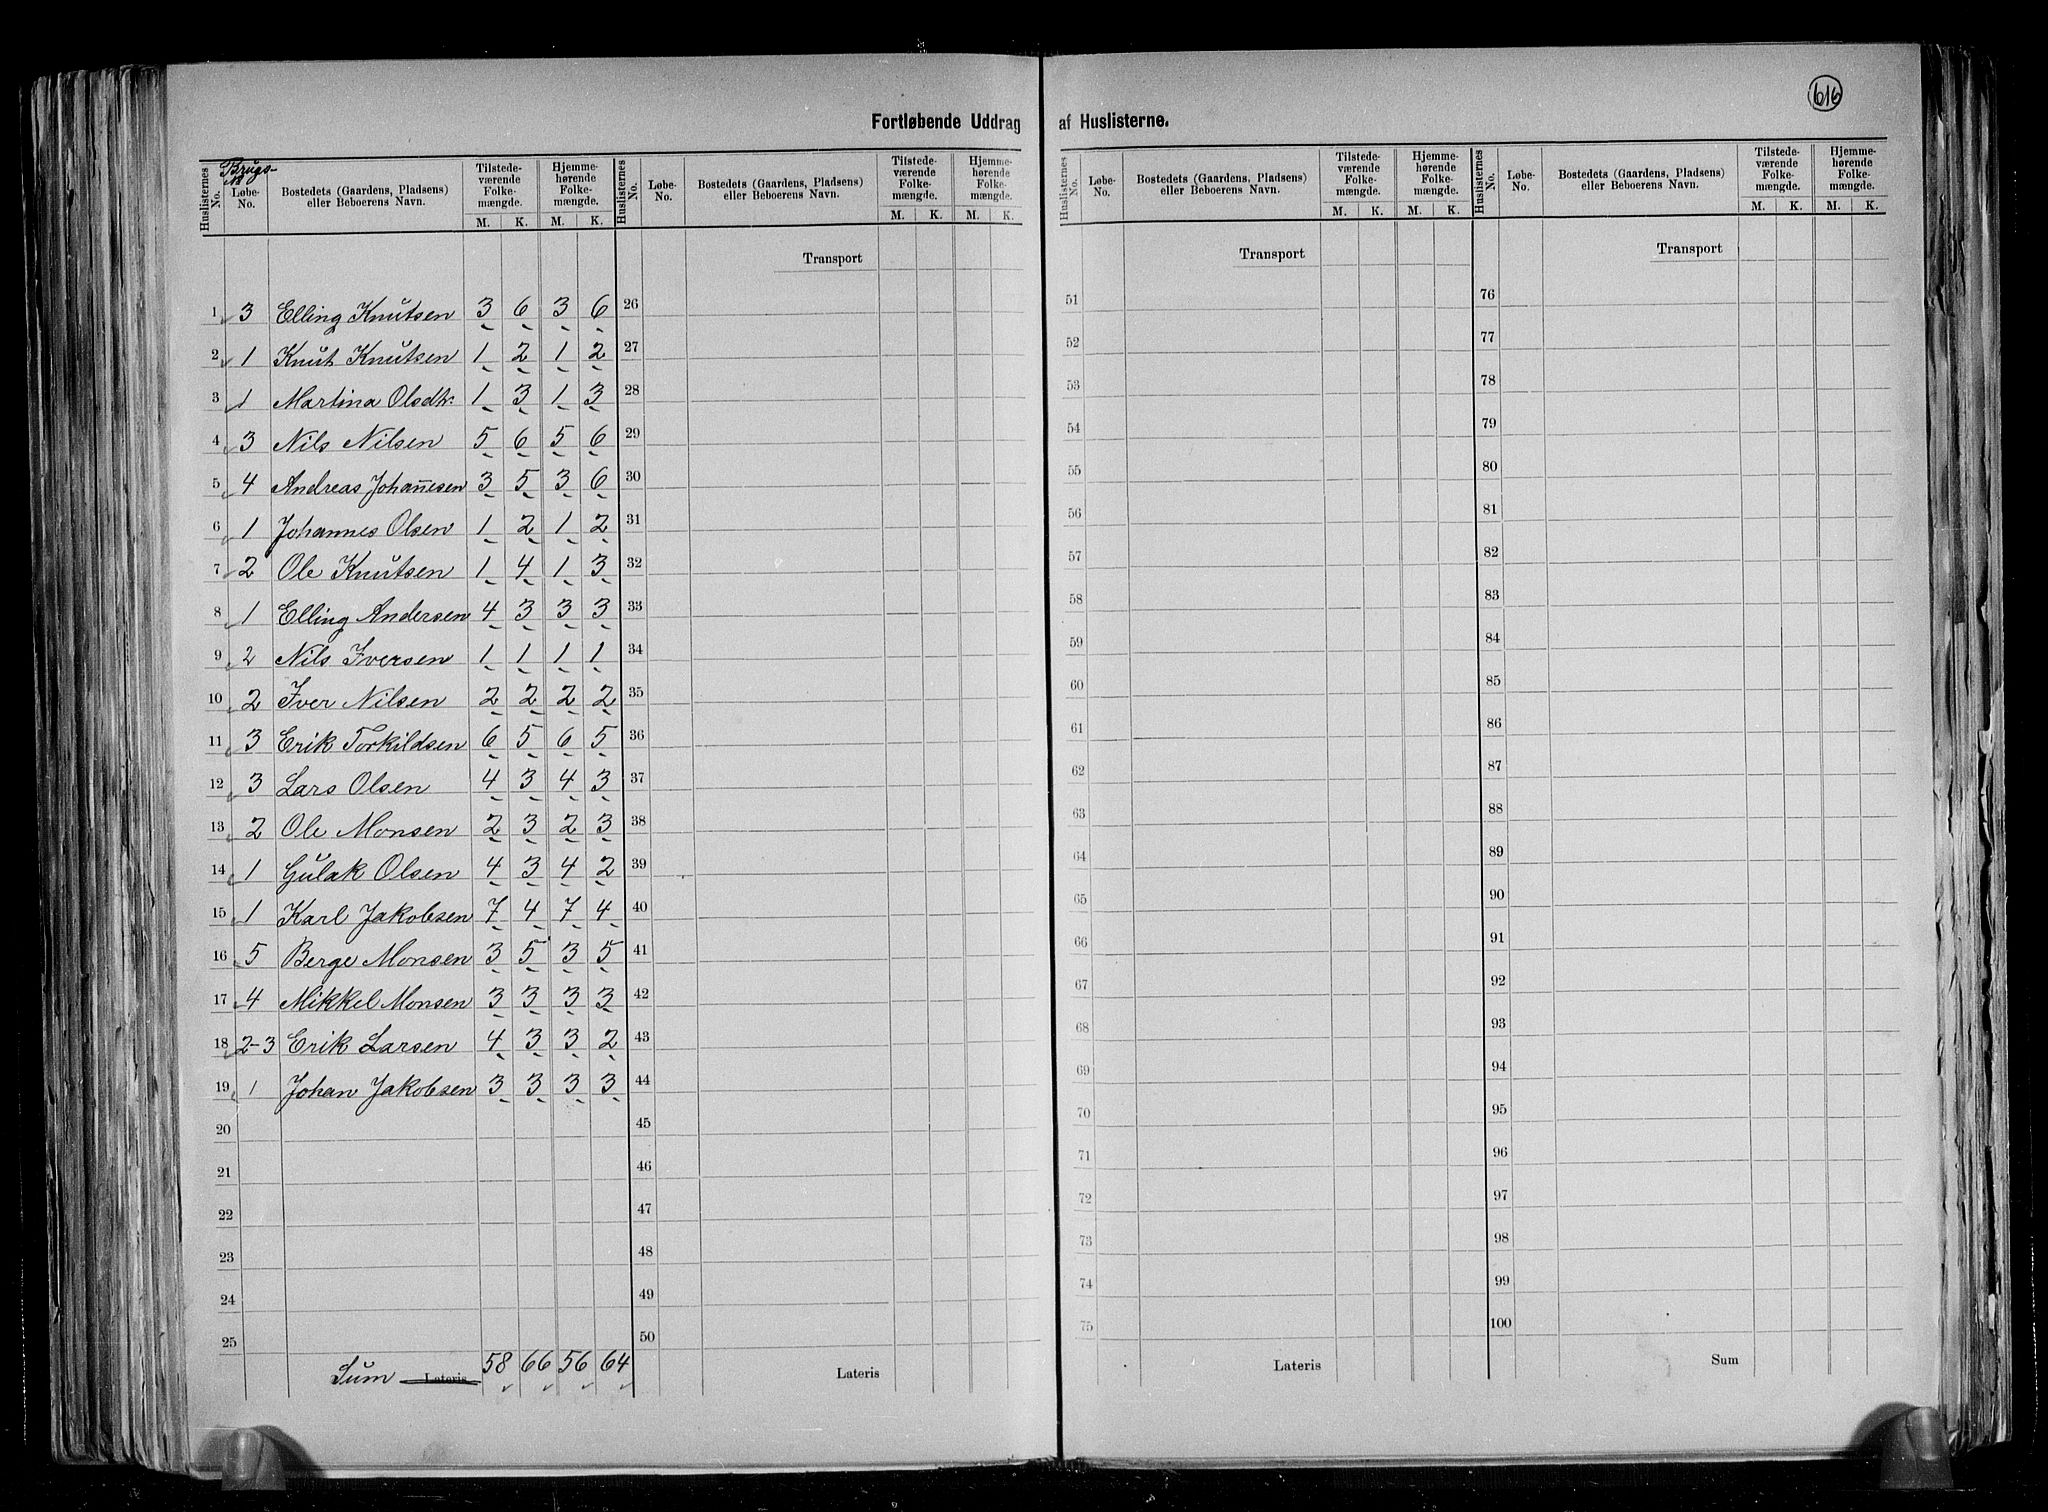 616
Fortløbende Uddrag af Huslisterne.
Huslisternes No. Brugs-No Løbe-No. Bostedets (Gaardens, Pladsens) eller Beboerens Navn. Tilstedeværende Folkemængde. M. K. Hjemmehørende Folkemængde. M. K.
1 3 Elling Knutsen 3 6 3 6
2 1 Knut Knutsen 1 2 1 2
3 1 Martina Olsdtr: 1 3 1 3
4 3 Nils Nilsen 5 6 5 6
5 4 Andreas Johannesen 3 5 3 6
6 1 Johannes Olsen 1 2 1 2
7 2 Ole Knutsen 1 4 1 3
8 1 Elling Andersen 4 3 3 3
9 2 Nils Iversen 1 1 1 1
10 2 Iver Nilsen 2 2 2 2
11 3 Erik Torkildsen 6 5 6 5
12 3 Lars Olsen 4 3 4 3
13 2 Ole Monsen 2 3 2 3
14 1 Gulak Olsen 4 3 4 2
15 1 Karl Jakobsen 7 4 7 4
16 5 Berge Monsen 3 5 3 5
17 4 Mikkel Monsen 3 3 3 3
18 2-3 Erik Larsen 4 3 3 2
19 1 Johan Jakobsen 3 3 3 3
20
21
22
23
24
25
Sum Lateris 58 66 56 64
Huslisternes No. Løbe-No. Bostedets (Gaardens, Pladsens) eller Beboerens Navn. Tilstedeværende Folkemængde. M. K. Hjemmehørende Folkemængde. M. K.
Transport
26
27
28
29
30
31
32
33
34
35
36
37
38
39
40
41
42
43
44
45
46
47
48
49
50
Lateris
Huslisternes No. Løbe-No. Bostedets (Gaardens, Pladsens) eller Beboerens Navn. Tilstedeværende Folkemængde. M. K. Hjemmehørende Folkemængde. M. K.
Transport
51
52
53
54
55
56
57
58
59
60
61
62
63
64
65
66
67
68
69
70
71
72
73
74
75
Lateris
Huslisternes No. Løbe-No. Bostedets (Gaardens, Pladsens) eller Beboerens Navn. Tilstedeværende Folkemængde. M. K. Hjemmehørende Folkemængde. M. K.
Transport
76
77
78
79
80
81
82
83
84
85
86
87
88
89
90
91
92
93
94
95
96
97
98
99
100
Sum